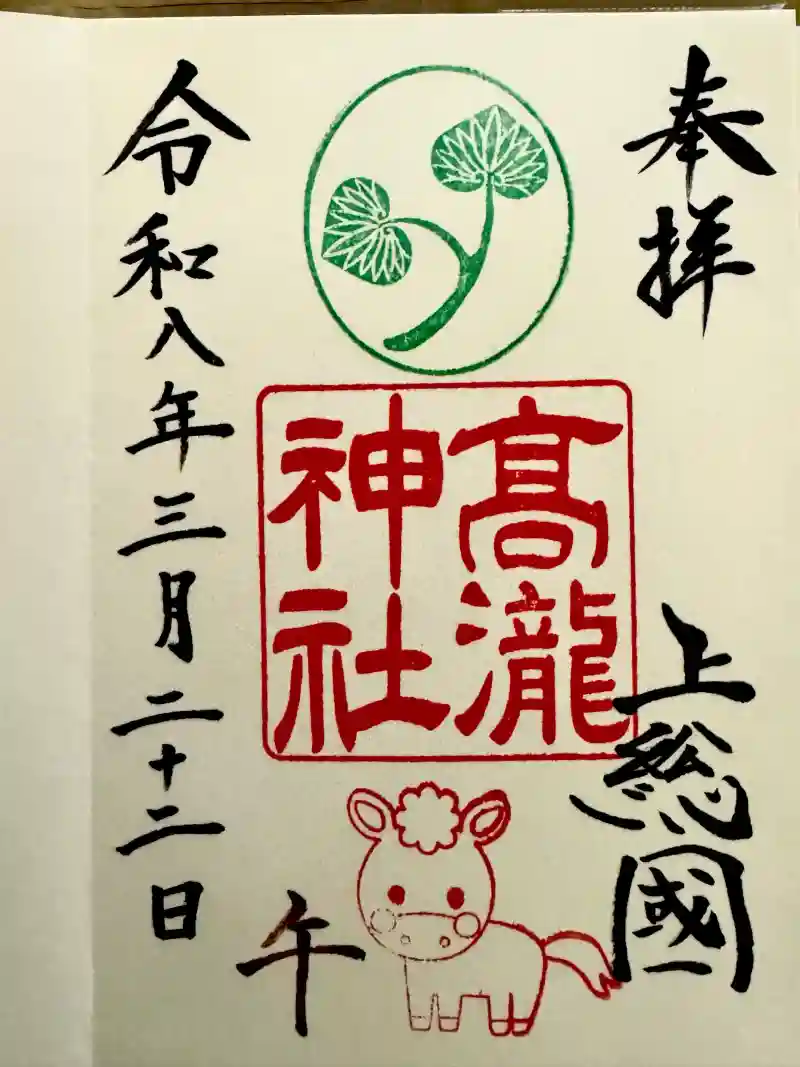 奉拝
上総國
髙瀧
神社
午
令和八年三月二十二日